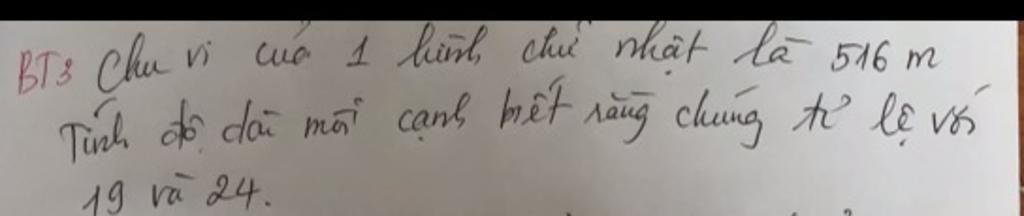 BT3 Chu vi của 1 hình chữ nhật là 516 m
Tính độ dài mỗi cạnh biết rằng chúng tỉ lệ với
19 và 24.